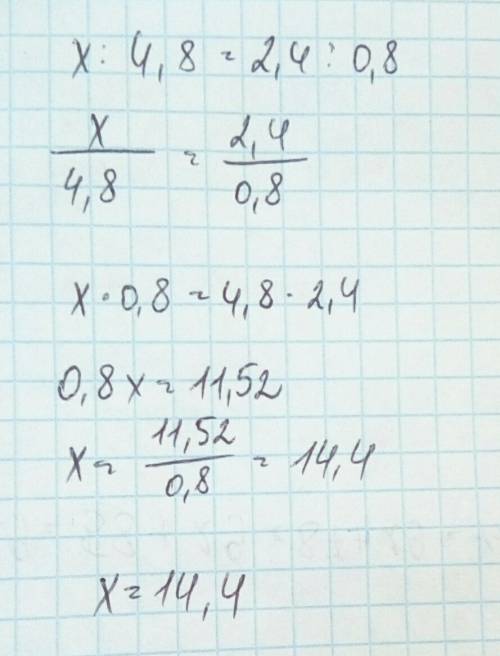 x : 4,8 = 2,4 : 0,8
x/4,8 = 2,4/0,8
x · 0,8 = 4,8 · 2,4
0,8x = 11,52
x = 11,52/0,8 = 14,4
x = 14,4